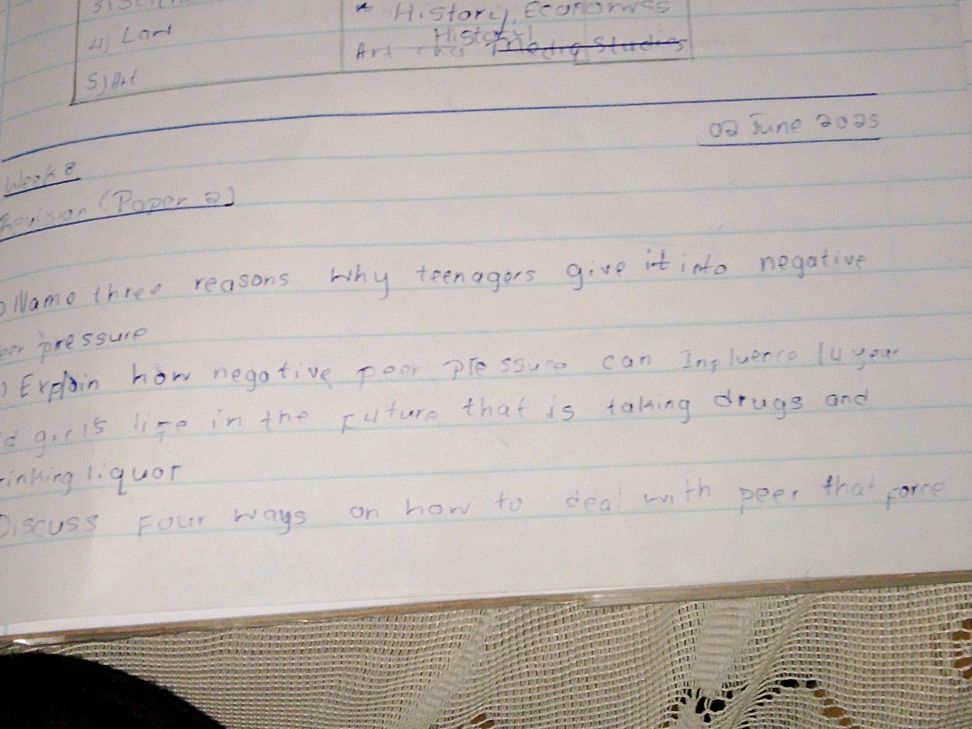 * History, Economics
4) Law
History
Art Media Studies
5) Art
02 June 2025
Week 8
Revision (Paper 2)
Name three reasons why teenagers give it into negative
pressure
Explain how negative peer pressure can Influence 14 year
girls life in the Future that is taking drugs and
inking liquor
Discuss Four ways on how to deal with peer that force